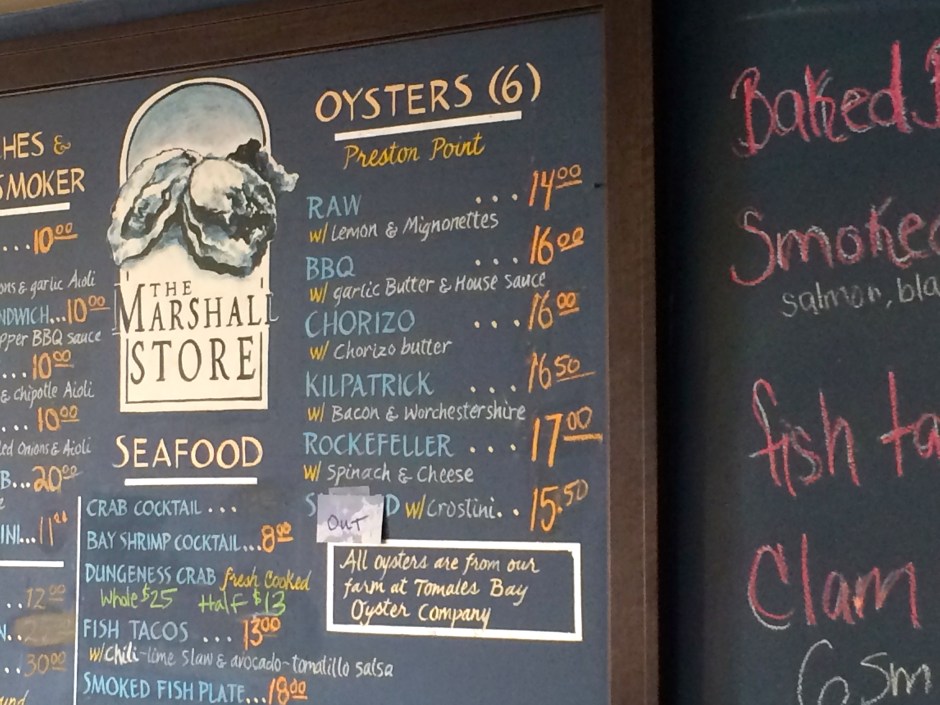 HES &
SMOKER
....10.00
ons & garlic Aioli
NDWICH...10.00
pper BBQ sauce
...10.00
& chipotle Aioli
....10.00
led Onions & Aioli
B...20.00
INI...11
..12.00
N..
...30.00
THE
MARSHALL
STORE
SEAFOOD
CRAB COCKTAIL ...
BAY SHRIMP COCKTAIL...8.00
DUNGENESS CRAB fresh Cooked
Whole $25 Half $13
FISH TACOS ... 13.00
w/Chili-lime Slaw & avocado-tomatillo Salsa
SMOKED FISH PLATE...18.00
OYSTERS (6)
Preston Point
RAW ... 14.00
w/ Lemon & Mignonettes
BBQ ... 16.00
w/ garlic Butter & House Sauce
CHORIZO ... 16.00
w/ Chorizo butter
KILPATRICK ... 16.50
w/ Bacon & Worchestershire
ROCKEFELLER ... 17.00
w/ Spinach & Cheese
S D w/ Crostini.. 15.50
OUT
All oysters are from our
farm at Tomales Bay
Oyster Company
Baked B
Smoked
salmon, bla
fish ta
Clam
6 Sm